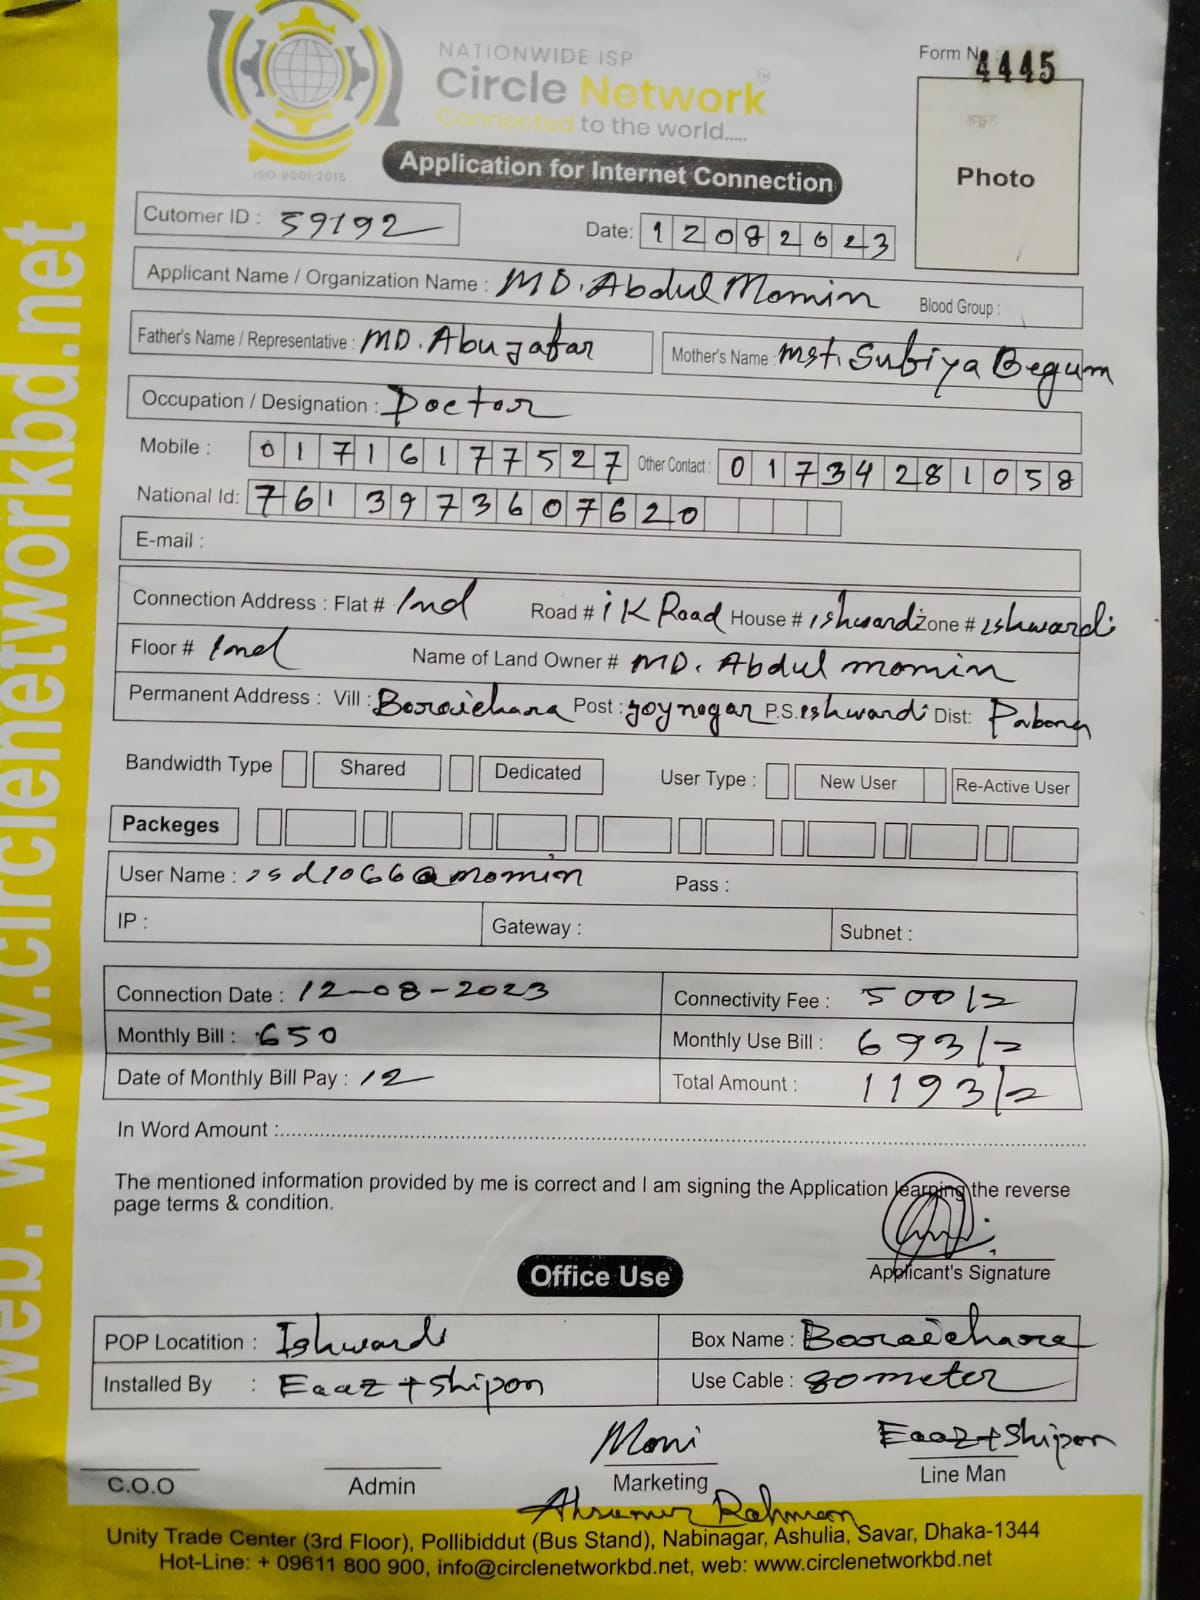 NATIONWIDE ISP
Circle Network TM
Connected to the world.....
ISO 9001:2015
Form No : 4445
Photo
Application for Internet Connection
Cutomer ID : 59192
Date: 12082023
Applicant Name / Organization Name : MD. Abdul Momin Blood Group :
Father's Name / Representative : MD. Abu jafar Mother's Name : Mst. Subiya Begum
Occupation / Designation : Doctor
Mobile : 01716177527 Other Contact : 01734281058
National Id: 7613973607620
E-mail :
Connection Address : Flat # 2nd Road # iK Road House # ishwardi Zone # ishwardi
Floor # 2nd Name of Land Owner # MD. Abdul momin
Permanent Address : Vill : Boraichara Post : joynogar P.S. ishwardi Dist: Pabona
Bandwidth Type Shared Dedicated User Type : New User Re-Active User
Packeges
User Name : isd1066@momin Pass :
IP : Gateway : Subnet :
Connection Date : 12-08-2023 Connectivity Fee : 500/=
Monthly Bill : 650 Monthly Use Bill : 693/=
Date of Monthly Bill Pay : 12 Total Amount : 1193/=
In Word Amount :
The mentioned information provided by me is correct and I am signing the Application learning the reverse
page terms & condition.
Applicant's Signature
Office Use
POP Locatition : Ishwardi Box Name : Booraichara
Installed By : Eaaz + Shipon Use Cable : 80 meter
Moni Eaaz + Shipon
C.O.O Admin Marketing Line Man
Rahman
Unity Trade Center (3rd Floor), Pollibiddut (Bus Stand), Nabinagar, Ashulia, Savar, Dhaka-1344
Hot-Line: + 09611 800 900, info@circlenetworkbd.net, web: www.circlenetworkbd.net
web: www.circlenetworkbd.net